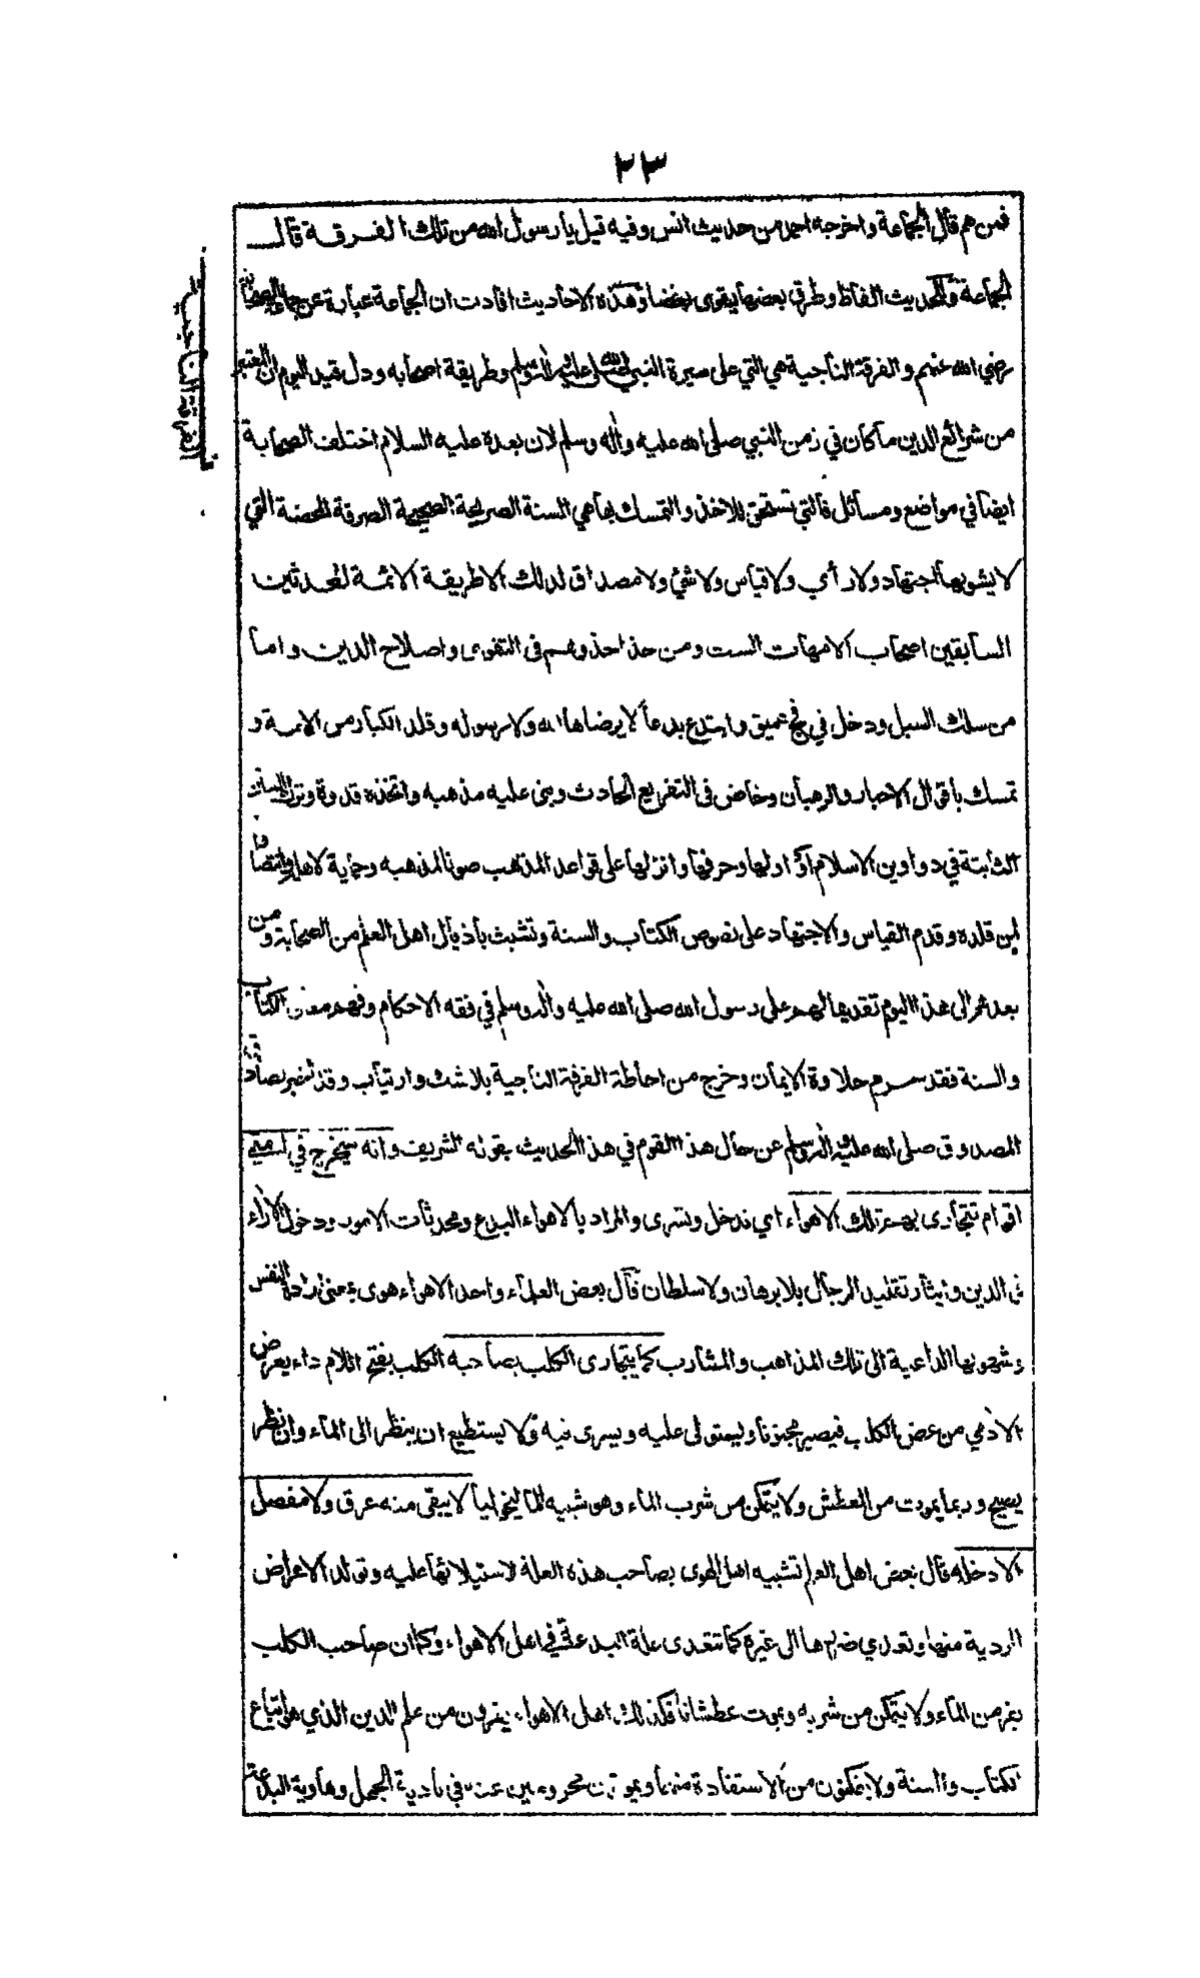 ٢٣
فمن هم قال الجماعة واخرجه احمد من حديث انس وفيه قيل يا رسول الله من تلك الفرقة قال
الجماعة وللحديث الفاظ وطرق بعضها يقوى بعضا وهذه الاحاديث افادت ان الجماعة عبارة عن جماعة الصحابة
رضي الله عنهم والفرقة الناجية هي التي على سيرة النبي صلى الله عليه واله وسلم وطريقة اصحابه ودل قيد اليوم ان المعتبر
من شرائع الدين ما كان في زمن النبي صلى الله عليه واله وسلم لان بعده عليه السلام اختلف الصحابة
ايضا في مواضع ومسائل فالتي تستحق للاخذ والتمسك بها هي السنة الصريحة الصحيحة الصرفة المحضة التي
لا يشوبها اجتهاد ولا رأي ولا قياس ولا شئ ولا مصداق لذلك الا طريقة الائمة المحدثين
السابقين اصحاب الامهات الست ومن حذا حذوهم في التقوى واصلاح الدين واما
من سلك السبل ودخل في فج عميق وابتدع بدعا لا يرضاها الله ولا رسوله وقلد الكبار من الائمة و
تمسك باقوال الاحبار والرهبان وخاض في التفريع الحادث وبنى عليه مذهبه واتخذه قدوة وترك السنن
الثابتة في دواوين الاسلام او اولها وحرفها وانزلها على قواعد المذهب صونا لمذهبه وحماية لاهله وانتصارا
لمن قلده وقدم القياس والاجتهاد على نصوص الكتاب والسنة وتشبث باذيال اهل العلم من الصحابة ومن
بعدهم الى هذا اليوم تقديما لهم على رسول الله صلى الله عليه واله وسلم في فقه الاحكام وفهم معنى الكتاب
والسنة فقد حرم حلاوة الايمان وخرج من احاطة الفرقة الناجية بلا شك وارتياب وقد اخبر الصادق
المصدوق صلى الله عليه واله وسلم عن حال هذا القوم في هذا الحديث بقوله الشريف وانه سيخرج في امتي
اقوام تتجارى بهم تلك الاهواء اي تدخل وتسرى والمراد بالاهواء البدع ومحدثات الامور ودخول الاراء
في الدين وايثار تقليد الرجال بلا برهان ولا سلطان قال بعض العلماء واحد الاهواء هوى بمعنى ارادة النفس
وشهوتها الداعية الى تلك المذاهب والمشارب كما يتجارى الكلب بصاحبه الكلب بفتح اللام داء يعرض
الادمي من عض الكلب فيصير مجنونا ويستولى عليه ويسرى فيه ولا يستطيع ان ينظر الى الماء وان نظر
يصيح وربما يموت من العطش ولا يتمكن من شرب الماء وهو شبيه المالیخولیا لا يبقى منه عرق ولا مفصل
الا دخله قال بعض اهل العلم تشبيه اهل الهوى بصاحب هذه العلة لاستيلائها عليه وتولد الاعراض
الردية منها وتعدي ضررها الى غيره كما تتعدى علة البدعة في اهل الاهواء وكما ان صاحب الكلب
يفر من الماء ولا يتمكن من شربه ويموت عطشانا فكذلك اهل الاهواء يفرون من علم الدين الذي هو اتباع
الكتاب والسنة ولا يتمكنون من الاستفادة منهما ويموتون محرومين عنه في بادية الجهل وهاوية البدعة
الفرقة الناجية